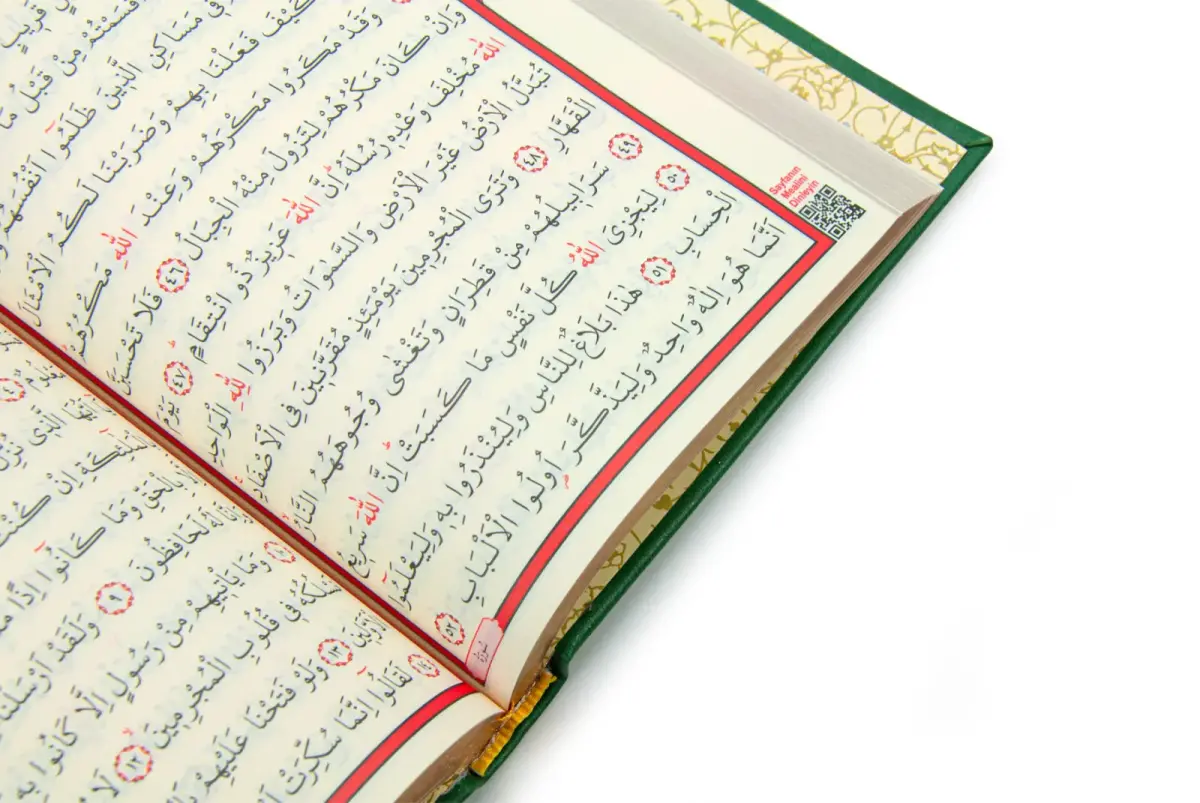 قَرٖيبٍ
قَسَمْتُمْ مِنْ قَبْلُ مَا
فٖى مَسَاكِنِ الَّذٖينَ ظَلَمُٓوا اَنْفُسَهُمْ
كَيْفَ فَعَلْنَا بِهِمْ وَضَرَبْنَا لَكُمُ الْاَمْثَالَ
وَقَدْ مَكَرُوا مَكْرَهُمْ وَعِنْدَ اللّٰهِ مَكْرُهُمْ
وَاِنْ كَانَ مَكْرُهُمْ لِتَزُولَ مِنْهُ الْجِبَالُ ٤٦ فَلَا تَحْسَبَنَّ
اللّٰهَ مُخْلِفَ وَعْدِهٖ رُسُلَهُ اِنَّ اللّٰهَ عَزٖيزٌ ذُو انْتِقَامٍ ٤٧ يَوْمَ
تُبَدَّلُ الْاَرْضُ غَيْرَ الْاَرْضِ وَالسَّمٰوَاتُ وَبَرَزُوا لِلّٰهِ الْوَاحِدِ
الْقَهَّارِ ٤٨ وَتَرَى الْمُجْرِمٖينَ يَوْمَئِذٍ مُقَرَّنٖينَ فِى الْاَصْفَادِ
٤٩ سَرَابٖيلُهُمْ مِنْ قَطِرَانٍ وَتَغْشٰى وُجُوهَهُمُ النَّارُ
٥٠ لِيَجْزِىَ اللّٰهُ كُلَّ نَفْسٍ مَا كَسَبَتْ اِنَّ اللّٰهَ سَرٖيعُ
الْحِسَابِ ٥١ هٰذَا بَلَاغٌ لِلنَّاسِ وَلِيُنْذَرُوا بِهٖ وَلِيَعْلَمُٓوا
اَنَّمَا هُوَ اِلٰهٌ وَاحِدٌ وَلِيَذَّكَّرَ اُولُوا الْاَلْبَابِ ٥٢
Sayfanın
Mealini
Dinleyin
سُورَةُ
الَّذٖى نُزِّلَ
اِنْ كُنْتَ
بِالْحَقِّ وَمَا كَانُٓوا اِذًا
لَهُ لَحَافِظُونَ ٩ وَلَقَدْ اَرْسَلْنَا
وَمَا يَاْتٖيهِمْ مِنْ رَسُولٍ اِلَّا كَانُوا بِهٖ
فٖى قُلُوبِ الْمُجْرِمٖينَ ١٢ لَا
الْاَوَّلٖينَ ١٣ وَلَوْ فَتَحْنَا عَلَيْهِمْ
١٤ لَقَالُٓوا اِنَّمَا سُكِّرَتْ